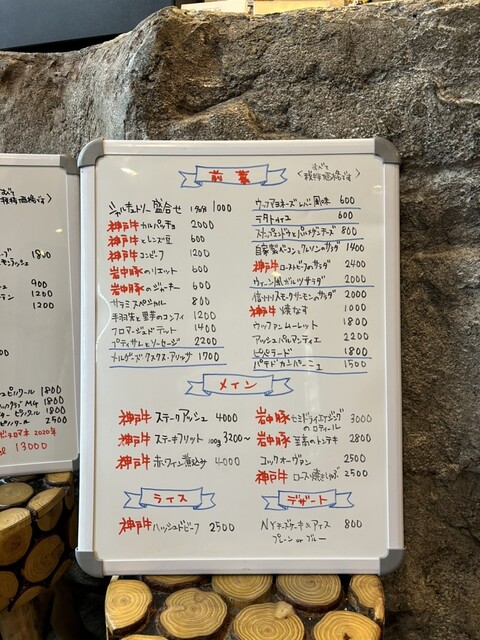 前菜
すべて
税抜価格です
シャルキュトリー盛合せ 1名分 1000
神戸牛カルパッチョ 2000
神戸牛とレンズ豆 600
神戸牛コンビーフ 1200
岩中豚のリエット 600
岩中豚のジャーキー 600
サラミスペシャル 800
手羽先と里芋のコンフィ 1200
フロマージュドテット 1400
プティサレとソーセージ 2200
メルゲーズクスクス・アリッサ 1700
ウッフマヨネーズ 600
ラタトゥイユ 600
スナップエンドウとパルメザンチーズ 800
自家製ベーコンとクレソンのサラダ 1400
神戸牛ローストビーフのサラダ 2400
ウィーン風ガルツサラダ 2000
信州スモークサーモンのサラダ 2000
神戸牛焼なす 1000
ウッフアンムーレット 1800
アッシュパルマンティエ 2200
ピペラード 1800
パテドカンパーニュ 1500
メイン
神戸牛ステークアッシュ 4000
神戸牛ステーキフリット 100g 3200〜
神戸牛ホホ赤ワイン煮込み 4000
岩中豚セミドライエイジングのロティール 3000
岩中豚里芋のトンテキ 2800
コックオーヴァン 2500
神戸牛ロースト焼き 2500
ライス
神戸牛ハッシュドビーフ 2500
デザート
NYチーズケーキ&アイス 800
プレーン or ブルー
1800
900
1200
1200
1800
1800
1800
2500
2020年
13000